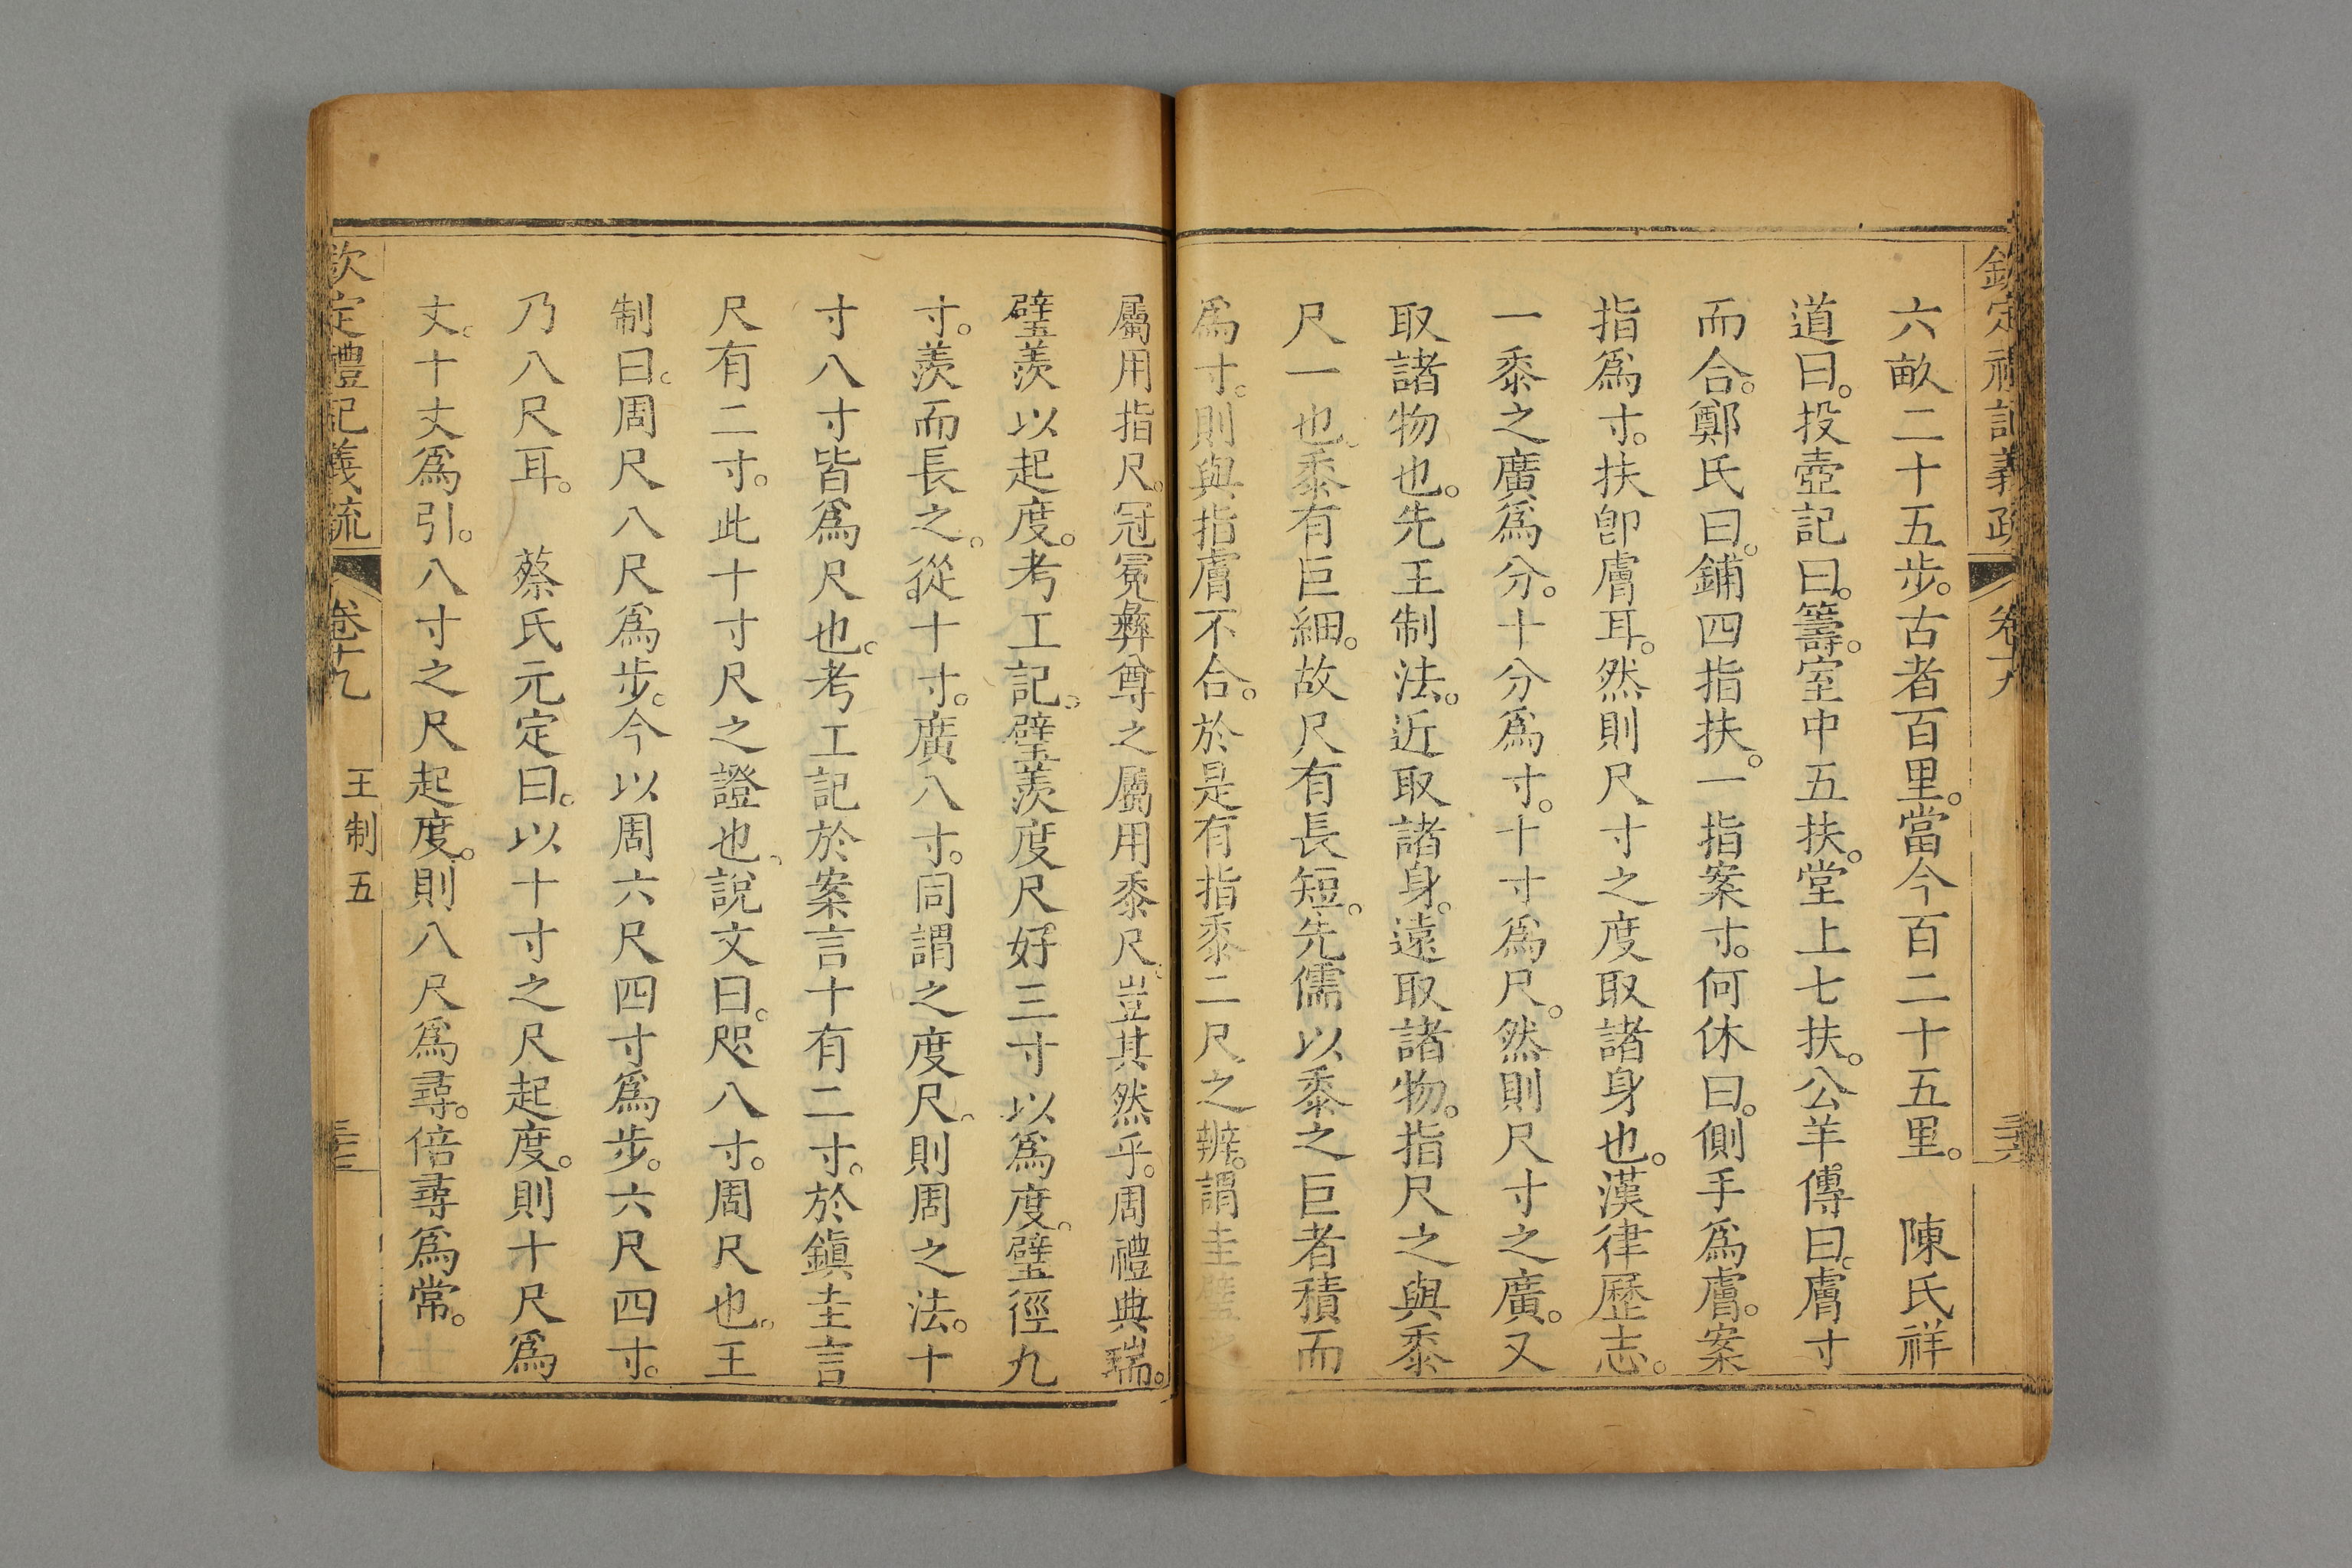 欽定禮記義疏 卷十九
六畝二十五步。古者百里。當今百二十五里。 陳氏祥
道曰。投壺記曰。籌。室中五扶。堂上七扶。公羊傳曰。膚寸
而合。鄭氏曰。鋪四指扶。一指案寸。何休曰。側手為膚。案
指爲寸。扶卽膚耳。然則尺寸之度取諸身也。漢律歷志。
一黍之廣爲分。十分爲寸。十寸爲尺。然則尺寸之廣。又
取諸物也。先王制法。近取諸身。遠取諸物。指尺之與黍
尺一也。黍有巨細。故尺有長短。先儒以黍之巨者積而
爲寸。則與指膚不合。於是有指黍二尺之辨。謂圭璧之
屬用指尺。冠冕彝尊之屬用黍尺。豈其然乎。周禮典瑞。
璧羨以起度。考工記。璧羨度尺。好三寸以爲度。璧徑九
寸。羨而長之。從十寸。廣八寸。同謂之度尺。則周之法。十
寸八寸皆爲尺也。考工記於案言十有二寸。於鎭圭言
尺有二寸。此十寸尺之證也。說文曰。咫八寸。周尺也。王
制曰。周尺八尺爲步。今以周六尺四寸爲步。六尺四寸。
乃八尺耳。 蔡氏元定曰。以十寸之尺起度。則十尺爲
丈。十丈爲引。八寸之尺起度。則八尺爲尋。倍尋爲常。
欽定禮記義疏 卷十九 王制五